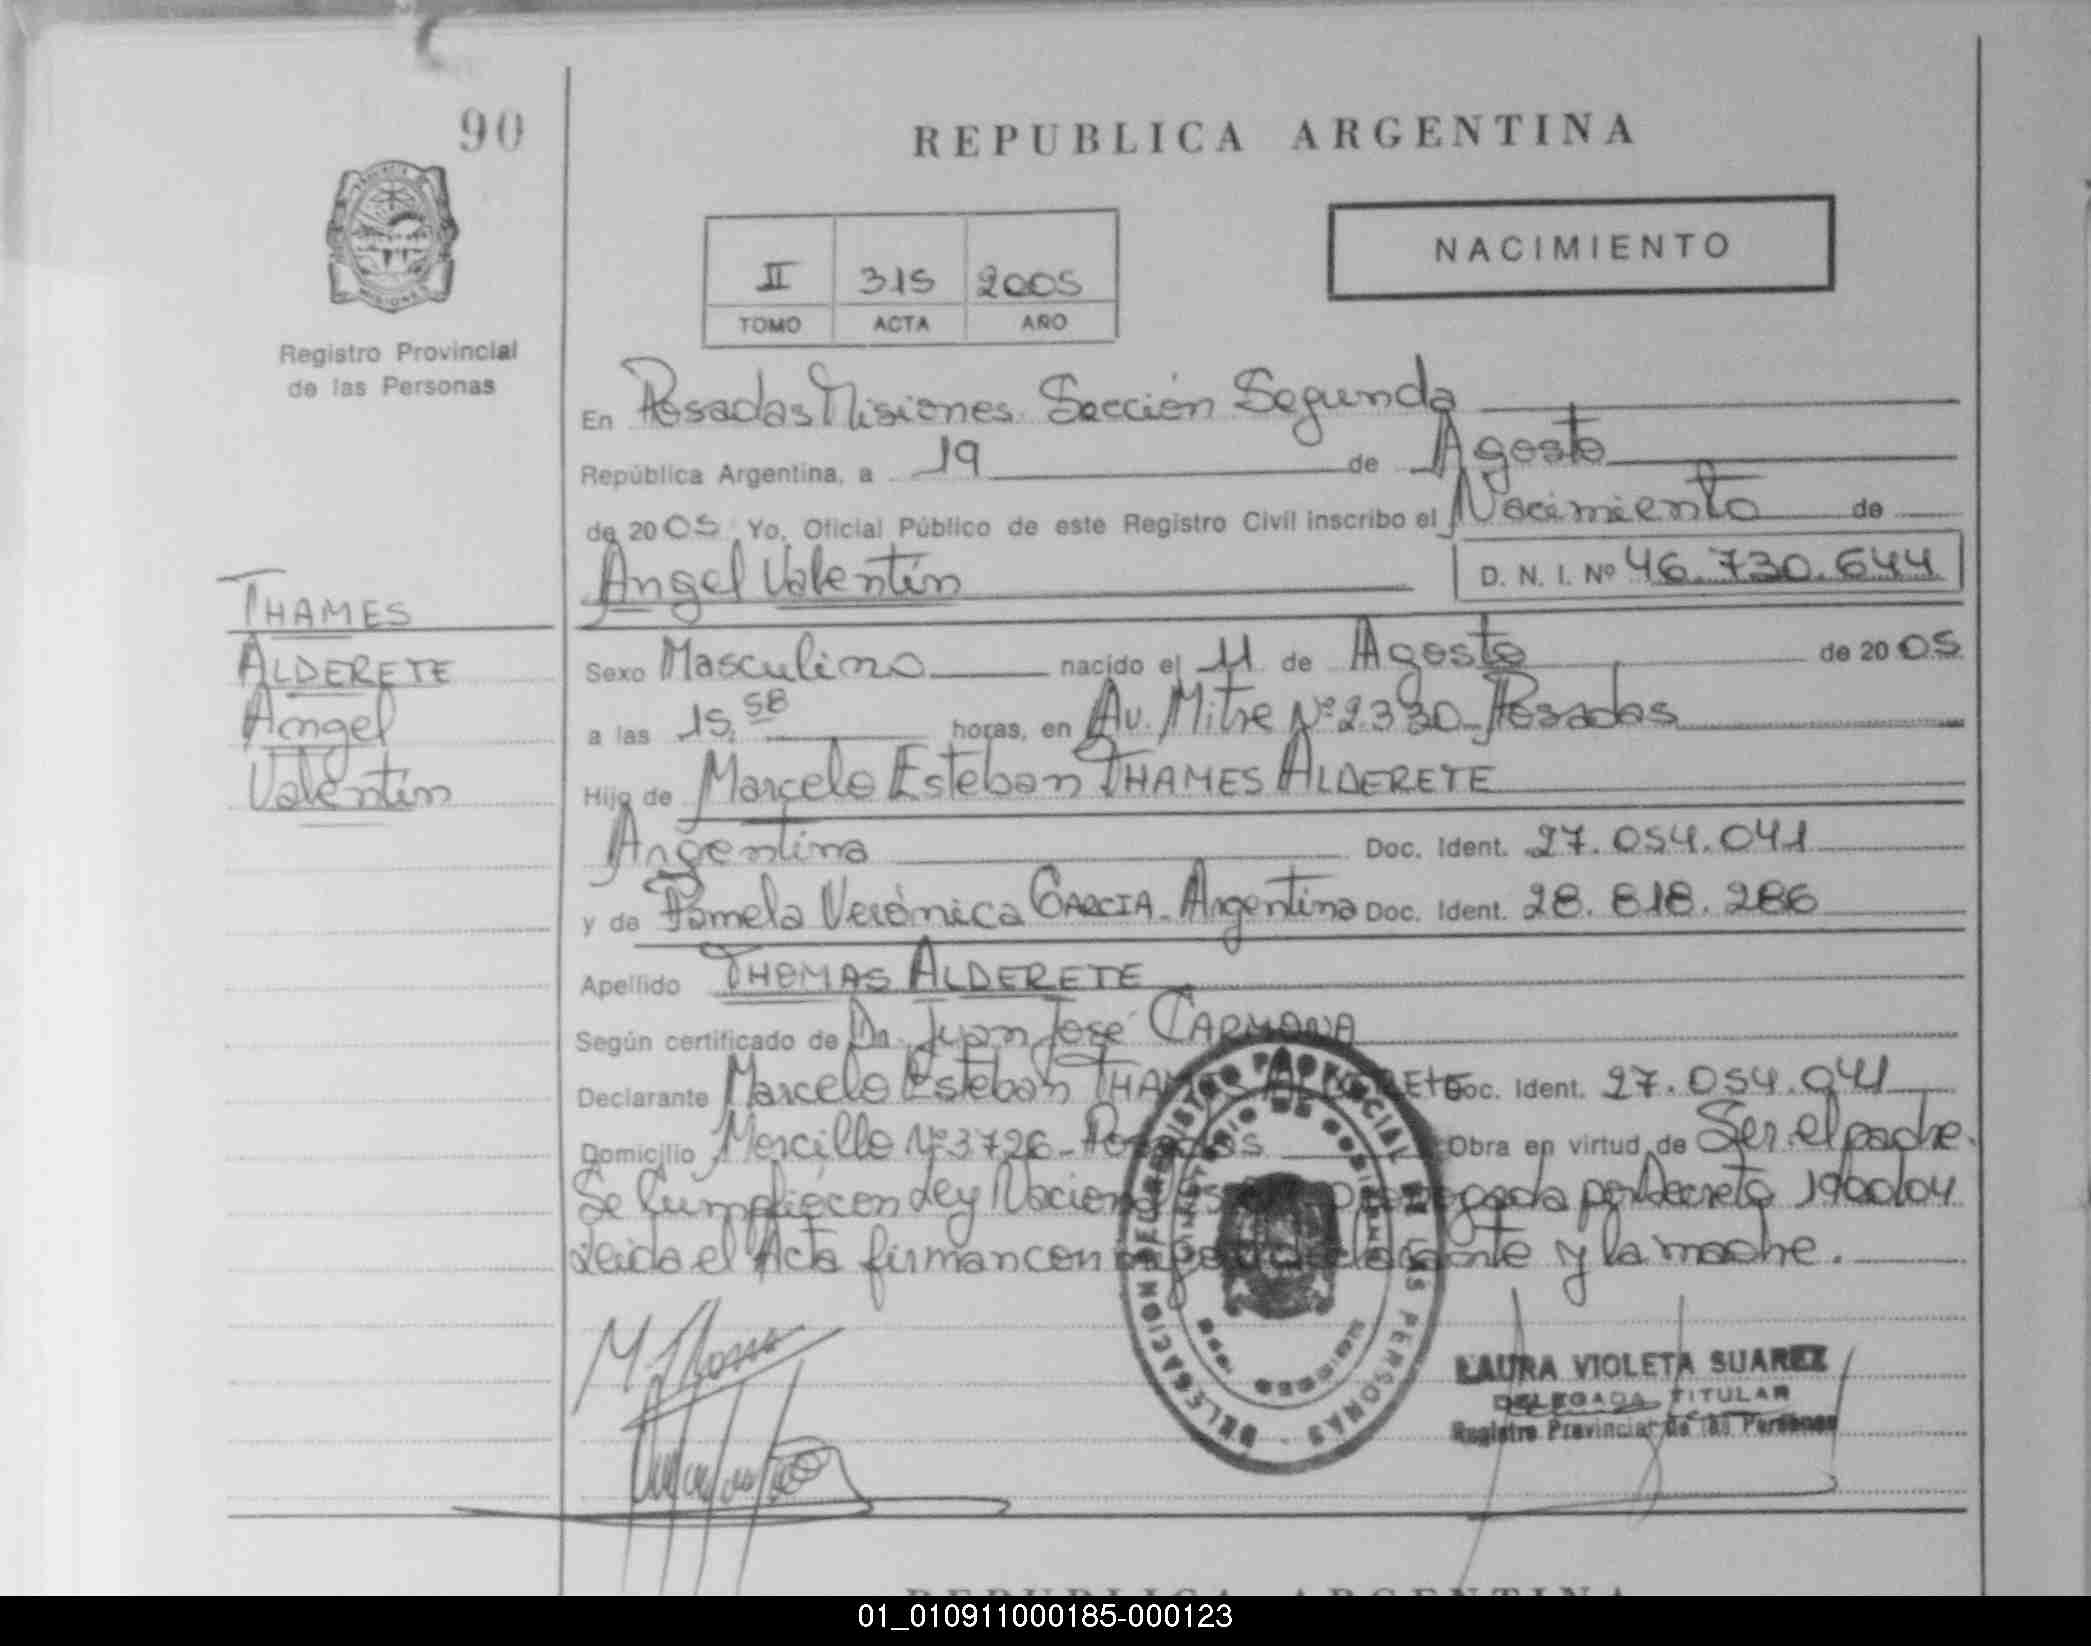 90
REPUBLICA ARGENTINA
NACIMIENTO
II 315 2005
TOMO ACTA AÑO
Registro Provincial
de las Personas
En Posadas Misiones. Sección Segunda
República Argentina, a 19 de Agosto
de 2005 Yo, Oficial Público de este Registro Civil inscribo el Nacimiento de
Angel Valentín D. N. I. Nº 46.730.644
THAMES
ALDERETE
Angel
Valentín
Sexo Masculino nacido el 11 de Agosto de 2005
a las 15,58 horas, en Av. Mitre Nº 2330 - Posadas
Hijo de Marcelo Esteban THAMES ALDERETE
Argentina Doc. Ident. 27.054.041
y de Pamela Verónica GARCIA - Argentina Doc. Ident. 28.818.286
Apellido THOMAS ALDERETE
Según certificado de Dr. Juan José CARMONA
Declarante Marcelo Esteban THAMES ALDERETE Doc. Ident. 27.054.041
Domicilio Nº 3726 - Posadas Obra en virtud de Ser el padre.
Se cumplió con Ley Nacional por Decreto 1900/04
Leida el Acta firman con el declarante y la madre.
DELEGACION REGISTRO PROVINCIAL DE LAS PERSONAS
MINISTERIO DE GOBIERNO
MISIONES
LAURA VIOLETA SUAREZ
DELEGADA TITULAR
Registro Provincial de las Personas
REPUBLICA ARGENTINA
01_010911000185-000123